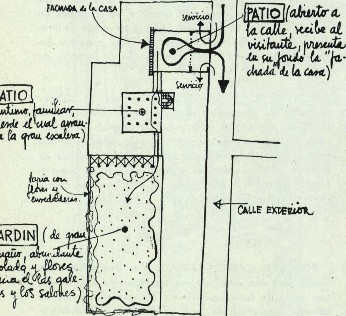 FACHADA de la CASA
servicio
servicio
PATIO (abierto a
la calle, recibe al
visitante, presenta
en su fondo la "fa-
chada de la casa)
ATIO
ntimo, familiar,
esde el cual arran-
a la gran escalera)
tapia con
flores y
enredaderas.
CALLE EXTERIOR
ARDIN (de gran
año, abundante
olada y flores
las gale-
s y los salones)